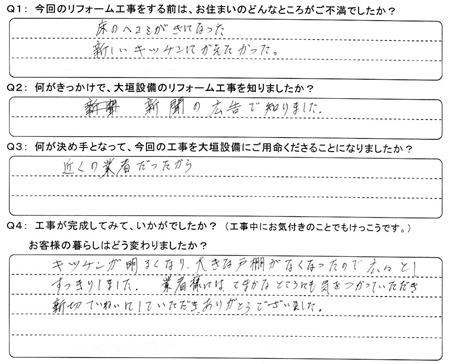 Q1: 今回のリフォーム工事をする前は、お住まいのどんなところがご不満でしたか?
床のヘコミが気になった
新しいキッチンにかえたかった。
Q2: 何がきっかけで、大垣設備のリフォーム工事を知りましたか?
新聞の広告で知りました。
Q3: 何が決め手となって、今回の工事を大垣設備にご用命くださることになりましたか?
近くの業者だったから
Q4: 工事が完成してみて、いかがでしたか? (工事中にお気付きのことでもけっこうです。)
お客様の暮らしはどう変わりましたか?
キッチンが明るくなり、大きな戸棚がなくなったので広々とし
すっきりしました。 業者様には 小さなところにも気をつかっていただき
親切ていねいにしていただき ありがとうございました。